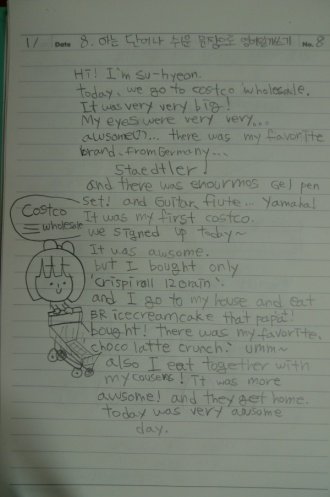 1/ Date 8. 아는 단어나 쉬운 문장으로 영어일기쓰기 No. 8
Hi! I'm su-hyeon.
today, we go to costco wholesale.
It was very very big!
My eyes were very very...
awsome!!... there was my favorite
brand. from Germany...
Staedtler!
and there was enourmos Gel pen
set! and Guitar, flute... Yamaha!
It was my first costco.
we signed up today~
Costco
wholesale
It was awsome.
but I bought only
'Crispiroll 12 Grain'.
and I go to my house and eat
BR icecreamcake that papa
bought! there was my favorite.
choco latte crunch! umm~
also I eat together with
my cousens! It was more
awsome! and they get home.
today was very awsome
day.